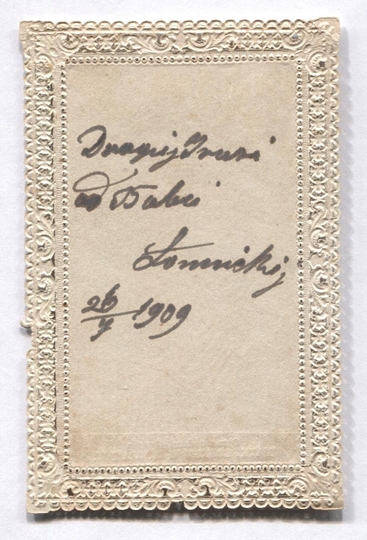 Drogiej Irusi
od Babci
Łomnickiej
26/7 1909